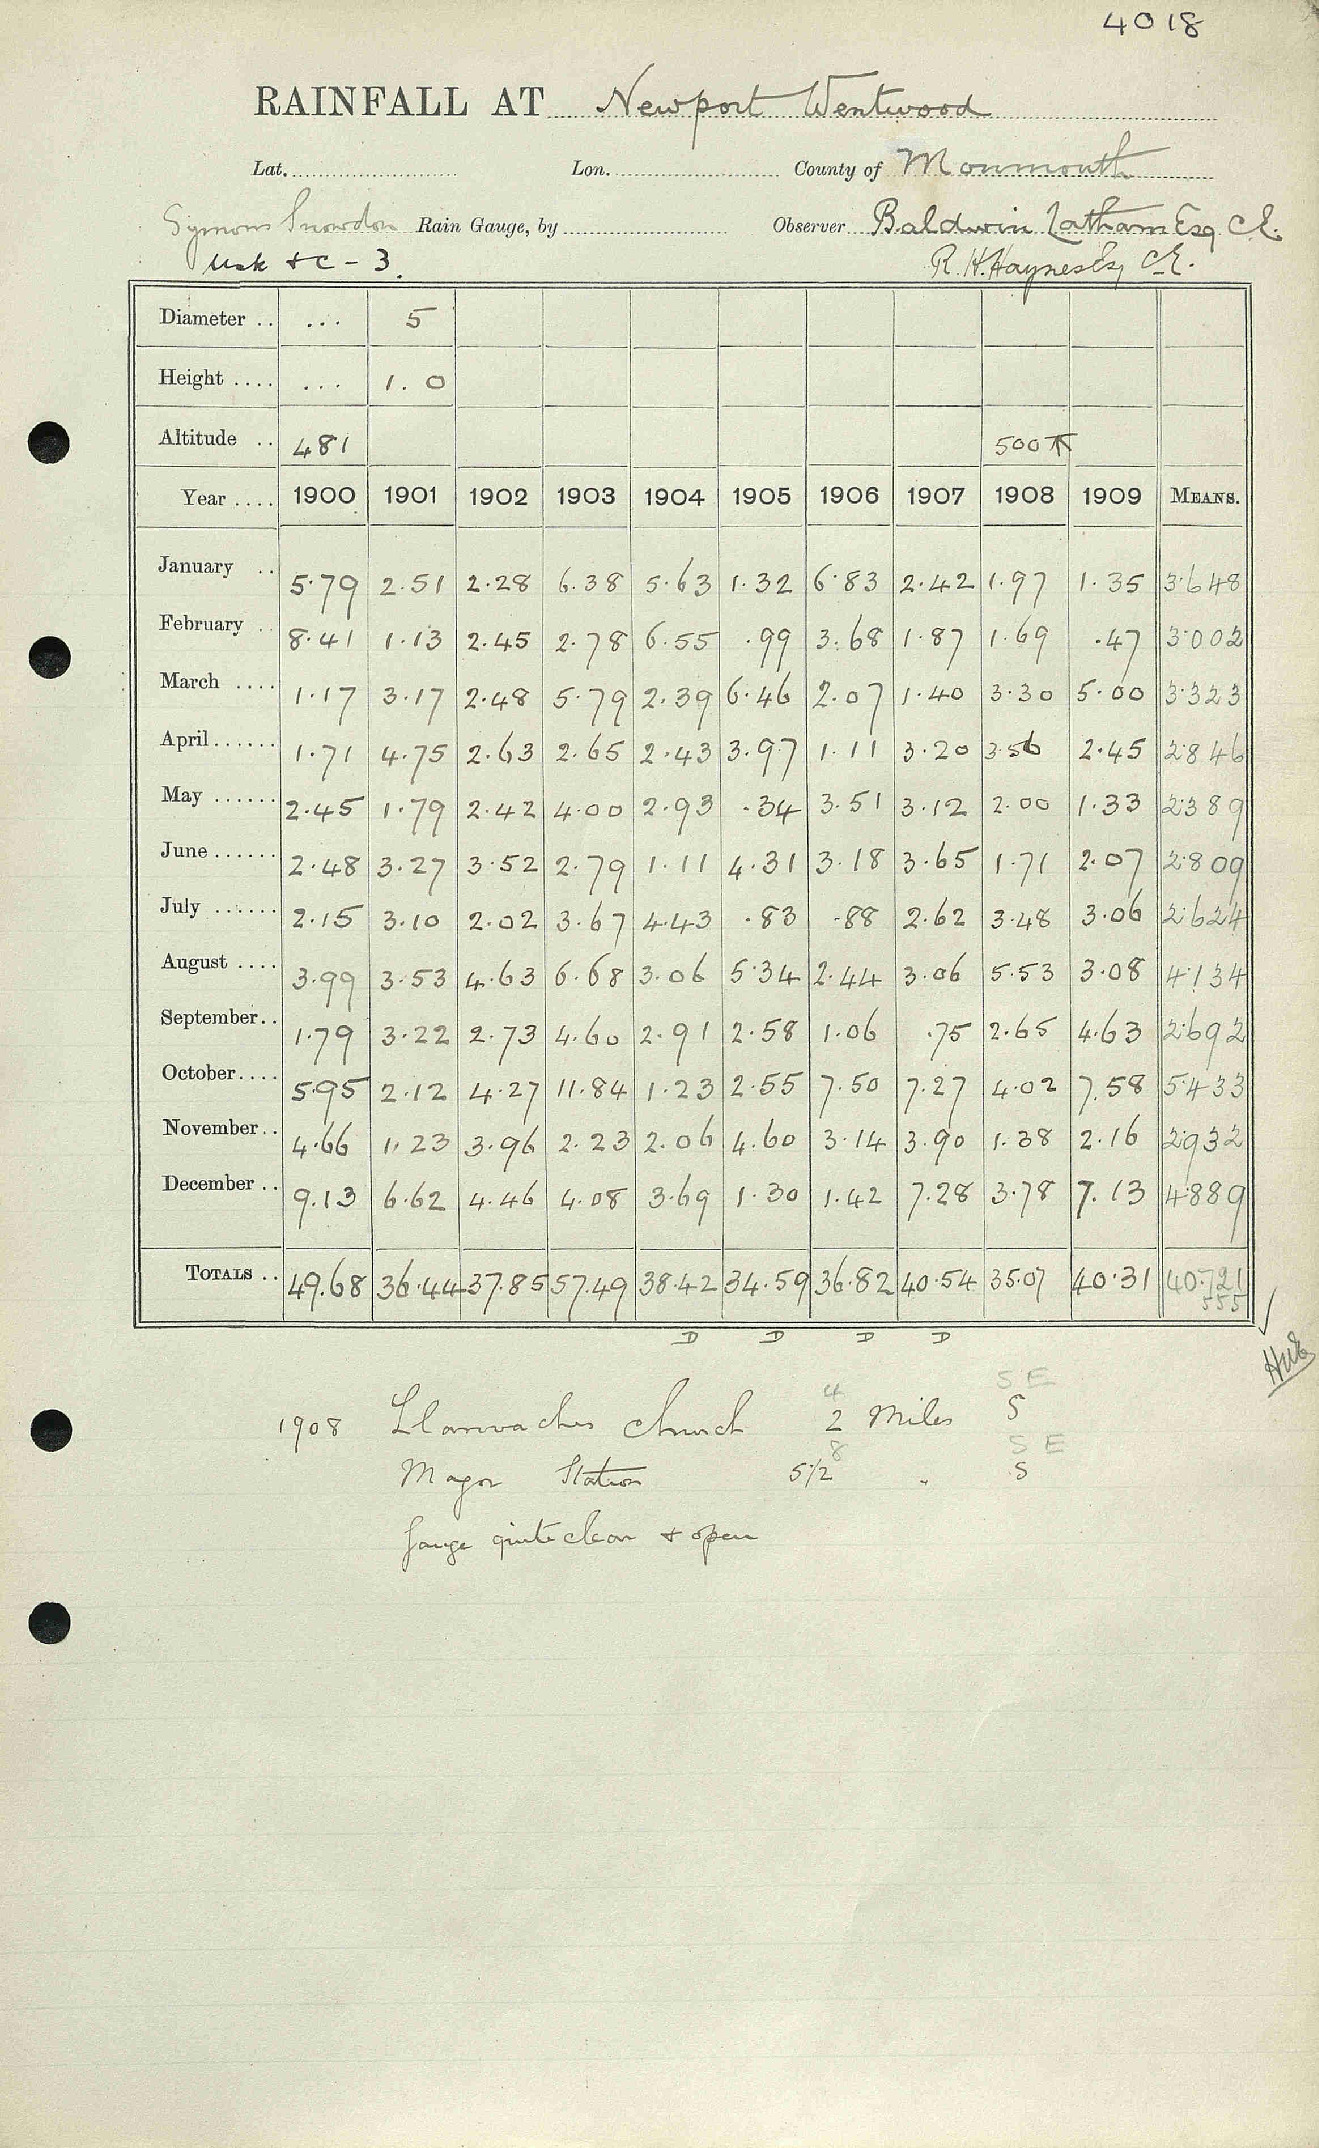 4018
RAINFALL AT Newport Wentwood
Lat. Lon. County of Monmouth
Symons Snowdon Rain Gauge, by Observer Baldwin Latham Esq C.E.
Usk &c - 3. R. H. Haynes Esq C.E.
Diameter .. ... 5
Height .... ... 1. 0
Altitude .. 481 500
Year .... 1900 1901 1902 1903 1904 1905 1906 1907 1908 1909 MEANS.
January .. 5.79 2.51 2.28 6.38 5.63 1.32 6.83 2.42 1.97 1.35 3.648
February .. 8.41 1.13 2.45 2.78 6.55 .99 3.68 1.87 1.69 .47 3.002
March .... 1.17 3.17 2.48 5.79 2.39 6.46 2.07 1.40 3.30 5.00 3.323
April...... 1.71 4.75 2.63 2.65 2.43 3.97 1.11 3.20 3.56 2.45 2.846
May ...... 2.45 1.79 2.42 4.00 2.93 .34 3.51 3.12 2.00 1.33 2.389
June...... 2.48 3.27 3.52 2.79 1.11 4.31 3.18 3.65 1.71 2.07 2.809
July ...... 2.15 3.10 2.02 3.67 4.43 .83 .88 2.62 3.48 3.06 2.624
August .... 3.99 3.53 4.63 6.68 3.06 5.34 2.44 3.06 5.53 3.08 4.134
September.. 1.79 3.22 2.73 4.60 2.91 2.58 1.06 .75 2.65 4.63 2.692
October.... 5.95 2.12 4.27 11.84 1.23 2.55 7.50 7.27 4.02 7.58 5.433
November.. 4.66 1.23 3.96 2.23 2.06 4.60 3.14 3.90 1.38 2.16 2.932
December .. 9.13 6.62 4.46 4.08 3.69 1.30 1.42 7.28 3.78 7.13 4.889
TOTALS .. 49.68 36.44 37.85 57.49 38.42 34.59 36.82 40.54 35.07 40.31 40.721
555
D D D D
4 SE
1908 Llanvaches Church 2 Miles S
8 SE
Magor Station 5 1/2 " S
Gauge quite clear & open